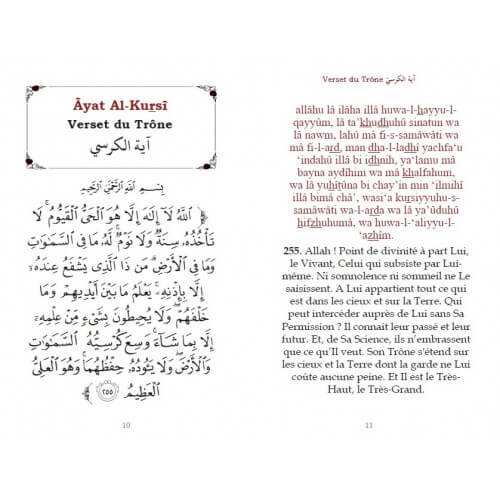 Âyat Al-Kursî
Verset du Trône
آية الكرسي
بِسْمِ اللَّهِ الرَّحْمَنِ الرَّحِيمِ
﴿ اللَّهُ لَا إِلَهَ إِلَّا هُوَ الْحَيُّ الْقَيُّومُ ۚ لَا
تَأْخُذُهُ سِنَةٌ وَلَا نَوْمٌ ۚ لَهُ مَا فِي السَّمَاوَاتِ
وَمَا فِي الْأَرْضِ ۗ مَن ذَا الَّذِي يَشْفَعُ عِندَهُ
إِلَّا بِإِذْنِهِ ۚ يَعْلَمُ مَا بَيْنَ أَيْدِيهِمْ وَمَا
خَلْفَهُمْ ۖ وَلَا يُحِيطُونَ بِشَيْءٍ مِّنْ عِلْمِهِ
إِلَّا بِمَا شَاءَ ۚ وَسِعَ كُرْسِيُّهُ السَّمَاوَاتِ
وَالْأَرْضَ ۖ وَلَا يَئُودُهُ حِفْظُهُمَا ۚ وَهُوَ الْعَلِيُّ
الْعَظِيمُ ٢٥٥ ﴾
10
Verset du Trône آية الكرسي
allâhu lâ ilâha illâ huwa-l-hayyu-l-
qayyûm, lâ ta'khudhuhu sinatun wa
lâ nawm, lahû mâ fi-s-samâwâti wa
mâ fi-l-ard, man dha-l-ladhî yachfa'u
'indahû illâ bi idhnih, ya'lamu mâ
bayna aydîhim wa mâ khalfahum,
wa lâ yuhîtûna bi chay'in min 'ilmihî
illâ bimâ châ', wasi'a kursiyyuhu-s-
samâwâti wa-l-arda wa lâ ya'ûduhû
hifzhuhumâ, wa huwa-l-'aliyyu-l-
'azhîm.
255. Allah ! Point de divinité à part Lui,
le Vivant, Celui qui subsiste par Lui-
même. Ni somnolence ni sommeil ne Le
saisissent. A Lui appartient tout ce qui
est dans les cieux et sur la Terre. Qui
peut intercéder auprès de Lui sans Sa
Permission ? Il connaît leur passé et leur
futur. Et, de Sa Science, ils n'embrassent
que ce qu'Il veut. Son Trône s'étend sur
les cieux et la Terre dont la garde ne Lui
coûte aucune peine. Et Il est le Très-
Haut, le Très-Grand.
11